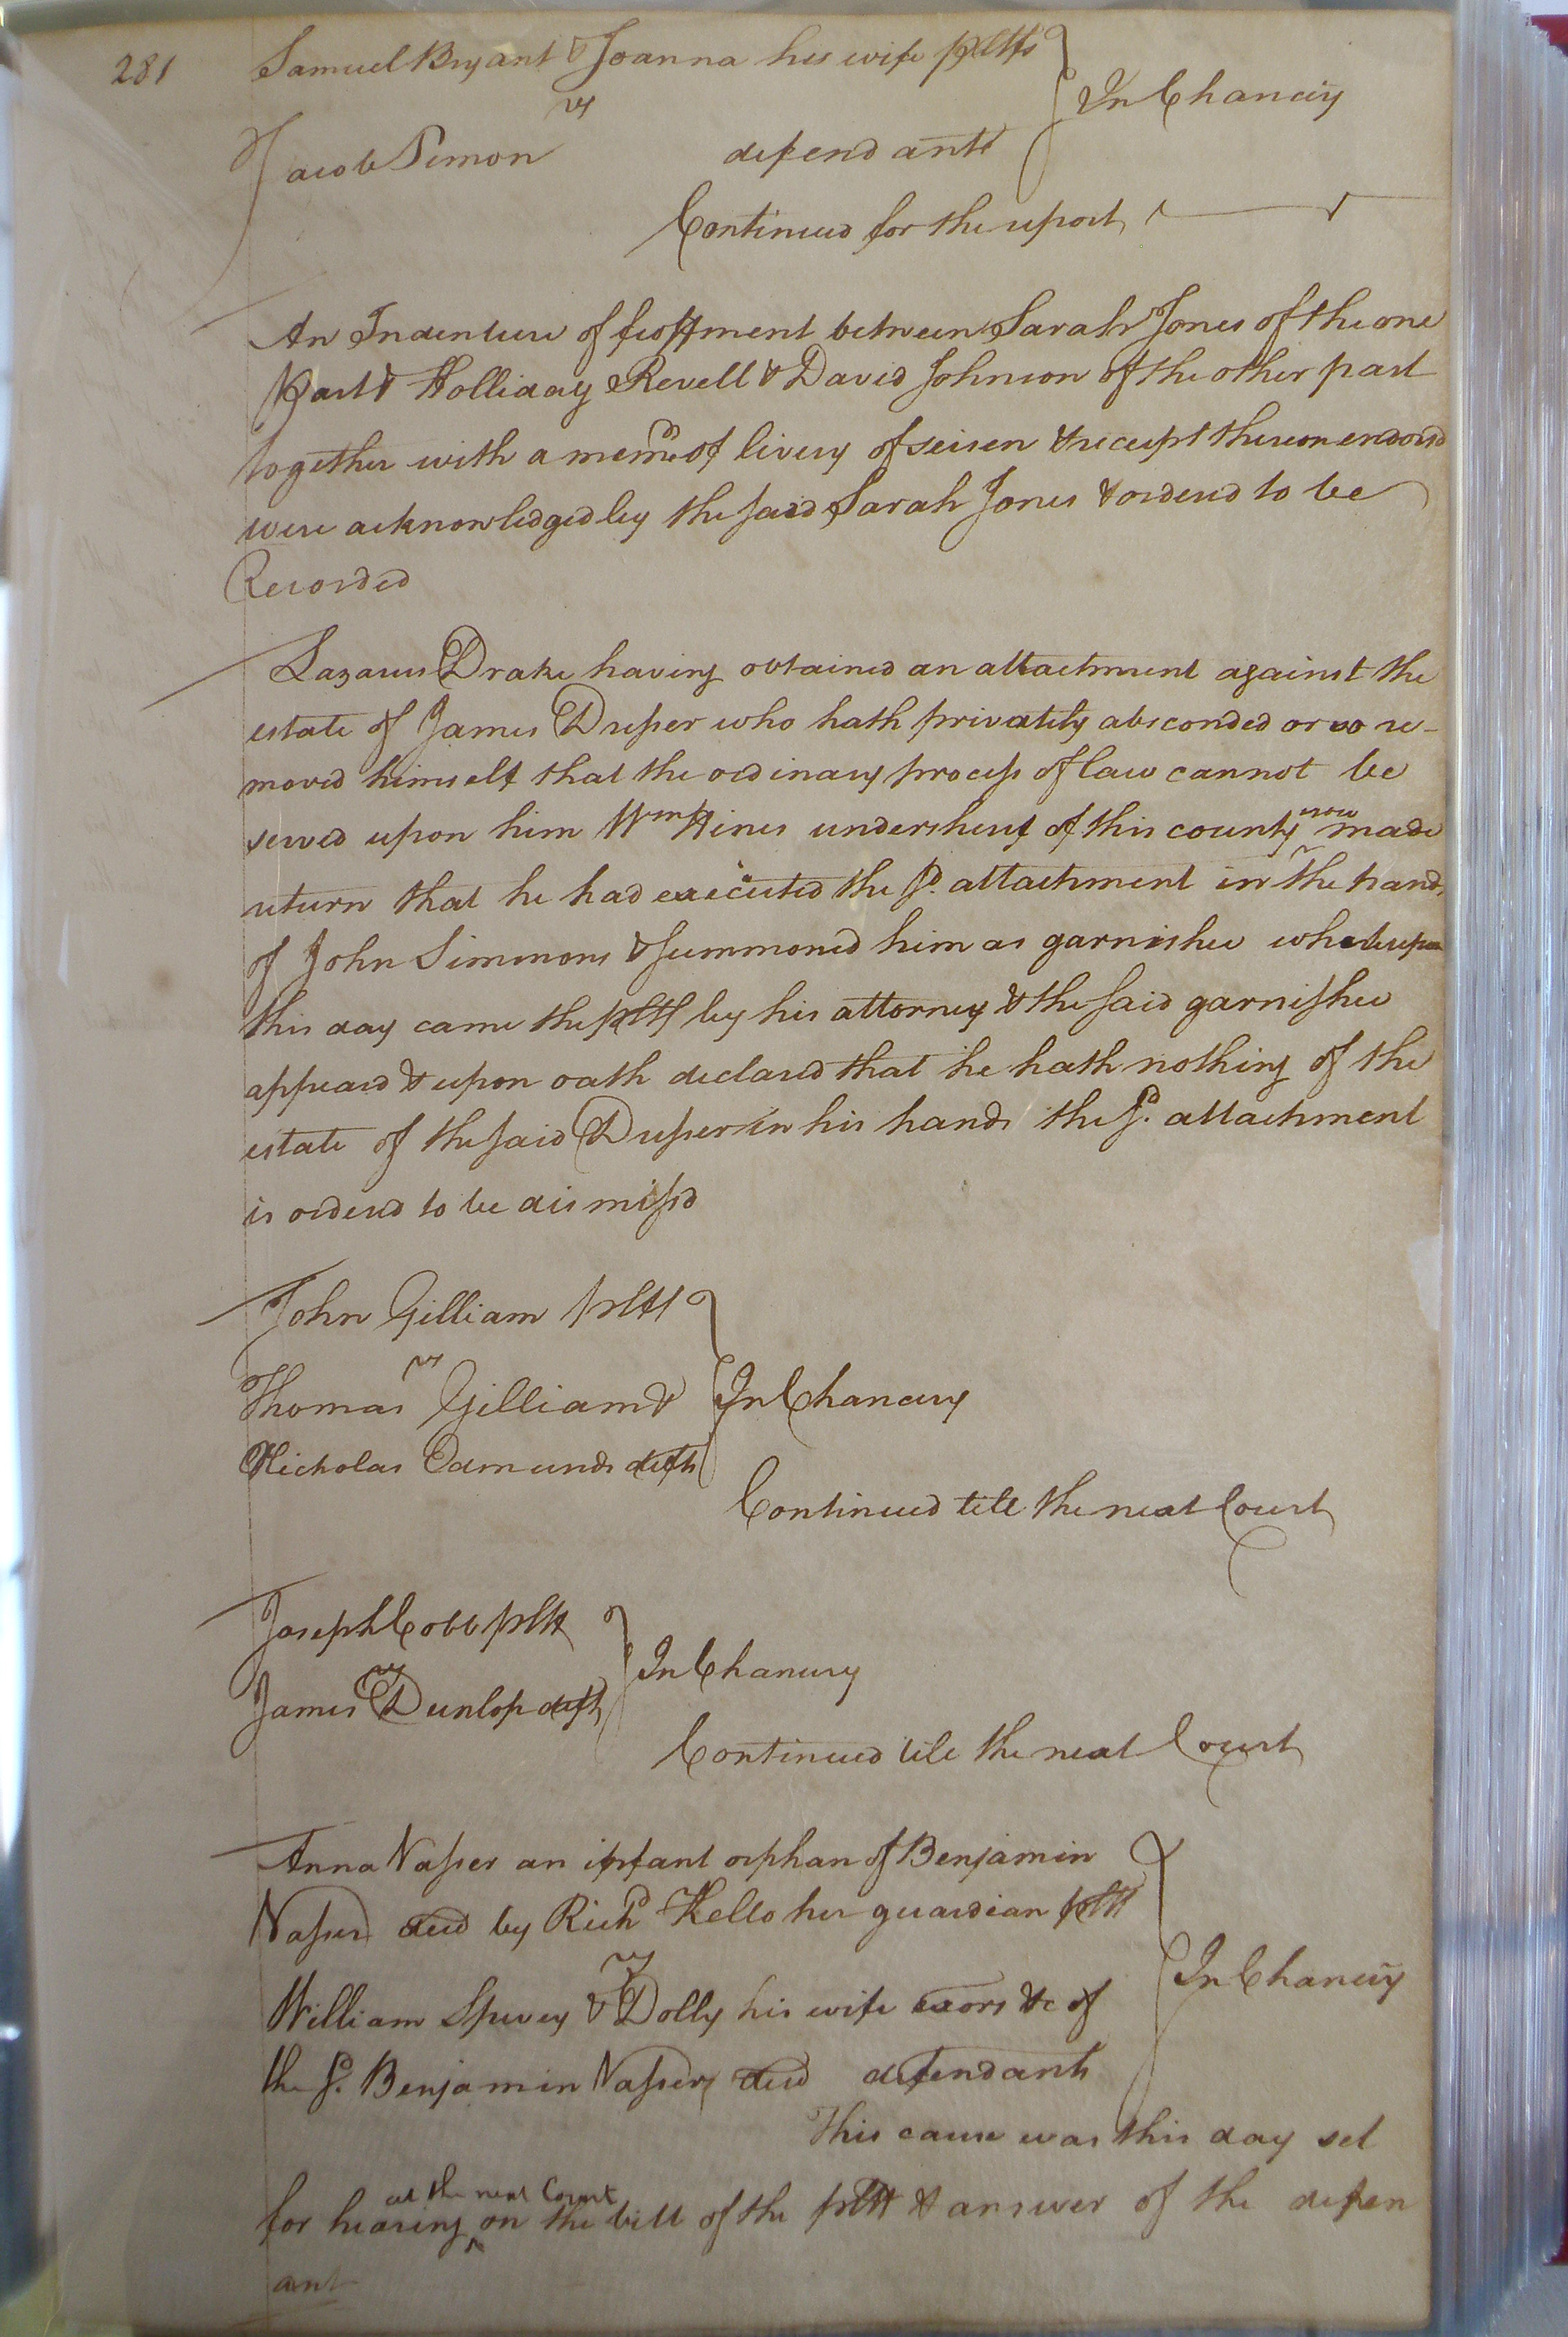 281
Samuel Bryant & Joanna his wife pltfs
vs
In Chancery
Jacob Simon defendants
Continued for the report
An Indenture of feoffment between Sarah Jones of the one
part & Holliday Revell & David Johnson of the other part
together with a memo. of livery of seisen & receipt thereon endorsd
were acknowledged by the said Sarah Jones & orderd to be
Recorded
Lazarus Drake having obtained an attachment against the
estate of James Druper who hath privately absconded or so re-
moved himself that the ordinary process of law cannot be
served upon him Wm Hines undersherif of this county now made
return that he had executed the sd. attachment in the hands
of John Simmons & summoned him as garnishee whereupon
this day came the pltf by his attorney & the said garnishee
appeard & upon oath declared that he hath nothing of the
estate of the said Druper in his hands the sd. attachment
is orderd to be dismissd
John Gilliam pltf
vs
Thomas Gilliam & In Chancery
Nicholas Edmunds defts
Continued till the next Court
Joseph Cobb pltf
vs
In Chancery
James Dunlop deft
Continued till the next Court
Anna Vasser an infant orphan of Benjamin
Vasser decd by Richd Kello her guardian pltf
vs
In Chancery
William Spivey & Dolly his wife exors &c of
the sd. Benjamin Vasser decd defendants
This cause was this day set
for hearing at the next Court on the bill of the pltf & answer of the defen
ant